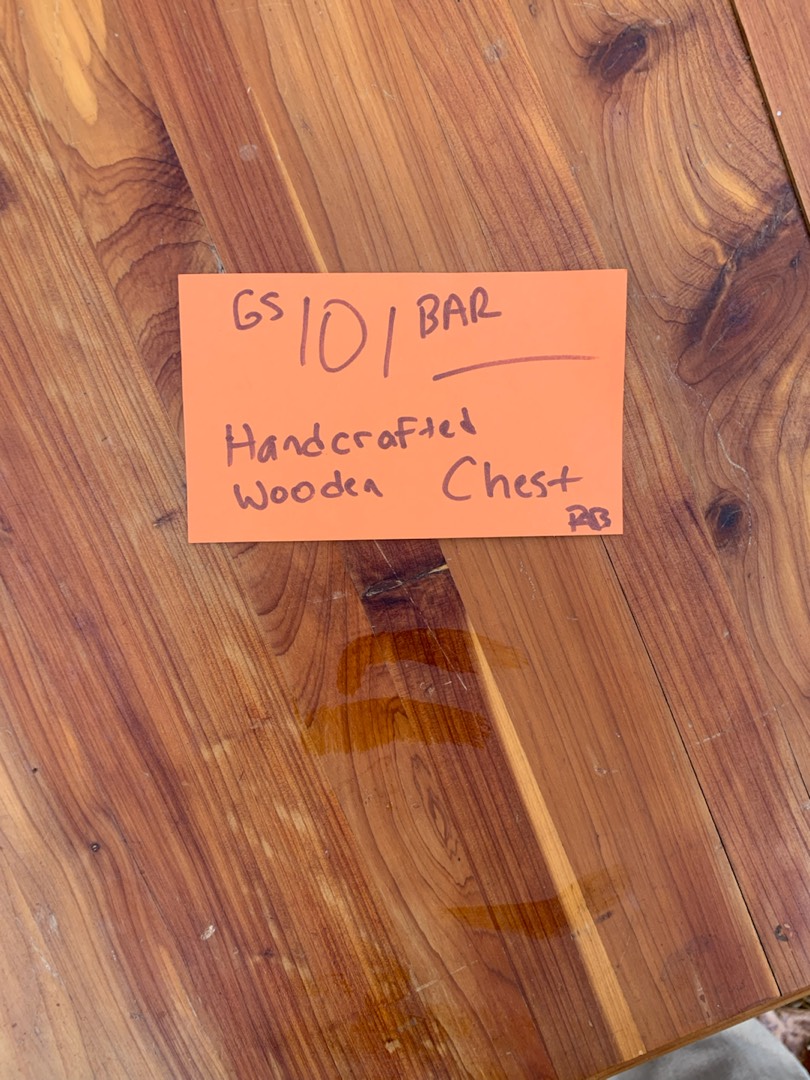 GS 101 BAR
Handcrafted
Wooden Chest
RB